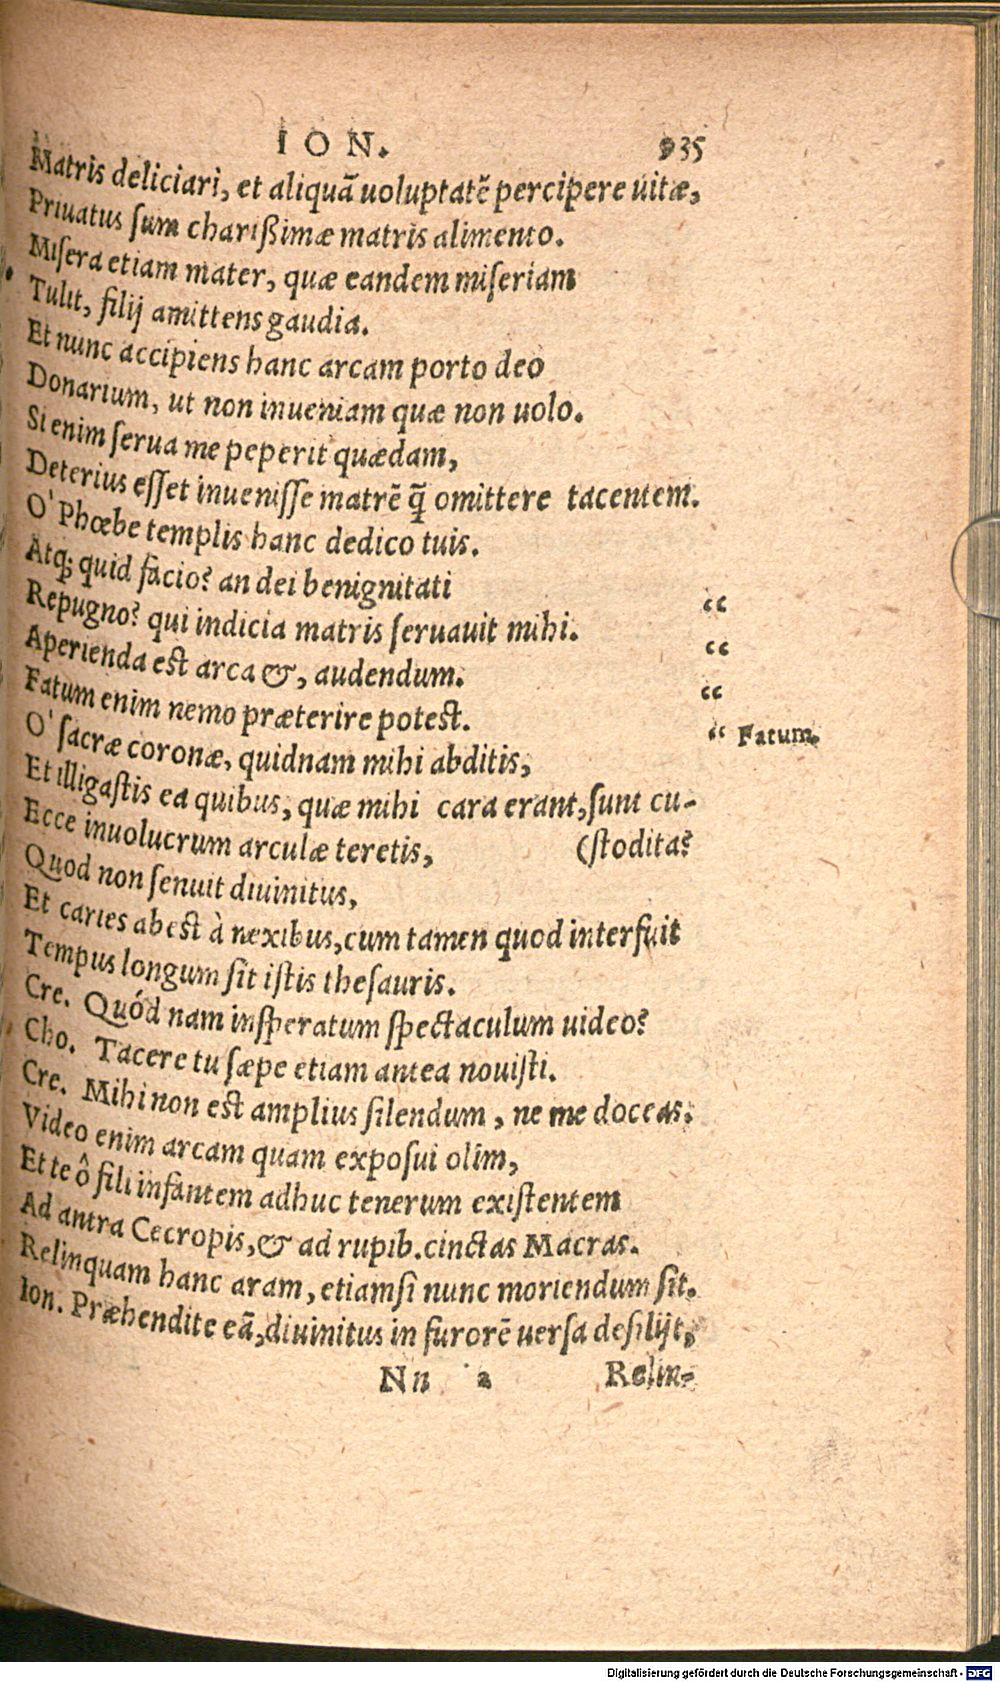 ION. 935
Matris deliciari, et aliquā uoluptatē percipere uitæ,
Priuatus sum charißimæ matris alimento.
Misera etiam mater, quæ eandem miseriam
Tulit, filij amittens gaudia.
Et nunc accipiens hanc arcam porto deo
Donarium, ut non inueniam quæ non uolo.
Si enim serua me peperit quædam,
Deterius esset inuenisse matrē q̄ omittere tacentem.
O' Phœbe templis hanc dedico tuis.
Atq; quid facio? an dei benignitati
Repugno? qui indicia matris seruauit mihi. “
Aperienda est arca &, audendum. “
Fatum enim nemo præterire potest. “
O' sacræ coronæ, quidnam mihi abditis, “ Fatum.
Et illigastis ea quibus, quæ mihi cara erant, sunt cu-
Ecce inuolucrum arculæ teretis, (stodita?
Quod non senuit diuinitus,
Et caries abest à nexibus, cum tamen quod interfuit
Tempus longum sit istis thesauris.
Cre. Quód nam insperatum spectaculum uideo?
Cho. Tacere tu sæpe etiam antea nouisti.
Cre. Mihi non est amplius silendum, ne me doceas.
Video enim arcam quam exposui olim,
Et te ô fili infantem adhuc tenerum existentem
Ad antra Cecropis, & ad rupib. cinctas Macras.
Relinquam hanc aram, etiamsi nunc moriendum sit.
Ion. Præhendite eā, diuinitus in furorē uersa desilijt,
Nn 2 Relin-
Digitalisierung gefördert durch die Deutsche Forschungsgemeinschaft - DFG